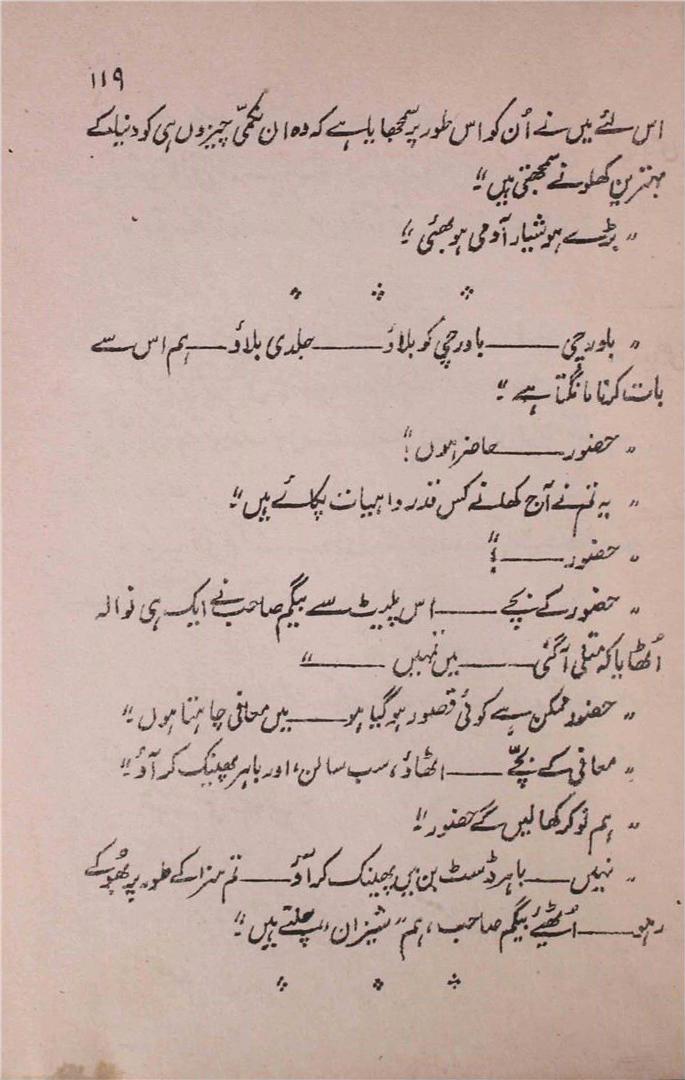 ۱۱۹
اس لئے میں نے اُن کو اس طور پر سمجھایا ہے کہ وہ ان نکمّی چیزوں ہی کو دنیا کے
بہترین کھلونے سمجھتی ہیں"
"بڑے ہوشیار آدمی ہو بھئی"
"باورچی ——— باورچی کو بلاؤ ——— جلدی بلاؤ ——— ہم اس سے
بات کرنا مانگتا ہے"
"حضور ——— حاضر ہوں!"
"یہ تم نے آج کھانے کس قدر واہیات پکائے ہیں"
"حضور ——— !"
"حضور کے بچے ——— اس پلیٹ سے بیگم صاحب نے ایک ہی نوالہ
اُٹھایا کہ متلی آگئی ——— میں نہیں ———"
"حضور ممکن ہے کوئی قصور ہو گیا ہو ——— میں معافی چاہتا ہوں"
"معافی کے بچّے ——— اٹھاؤ، سب سالن، اور باہر پھینک کر آؤ"
"ہم نوکر کھا لیں گے حضور"
"نہیں ——— باہر ڈسٹ بن میں پھینک کر آؤ ——— تم سزا کے طور پر بھُوکے
رہو ——— اُٹھئیے بیگم صاحب، ہم "شیزان" چلتے ہیں"